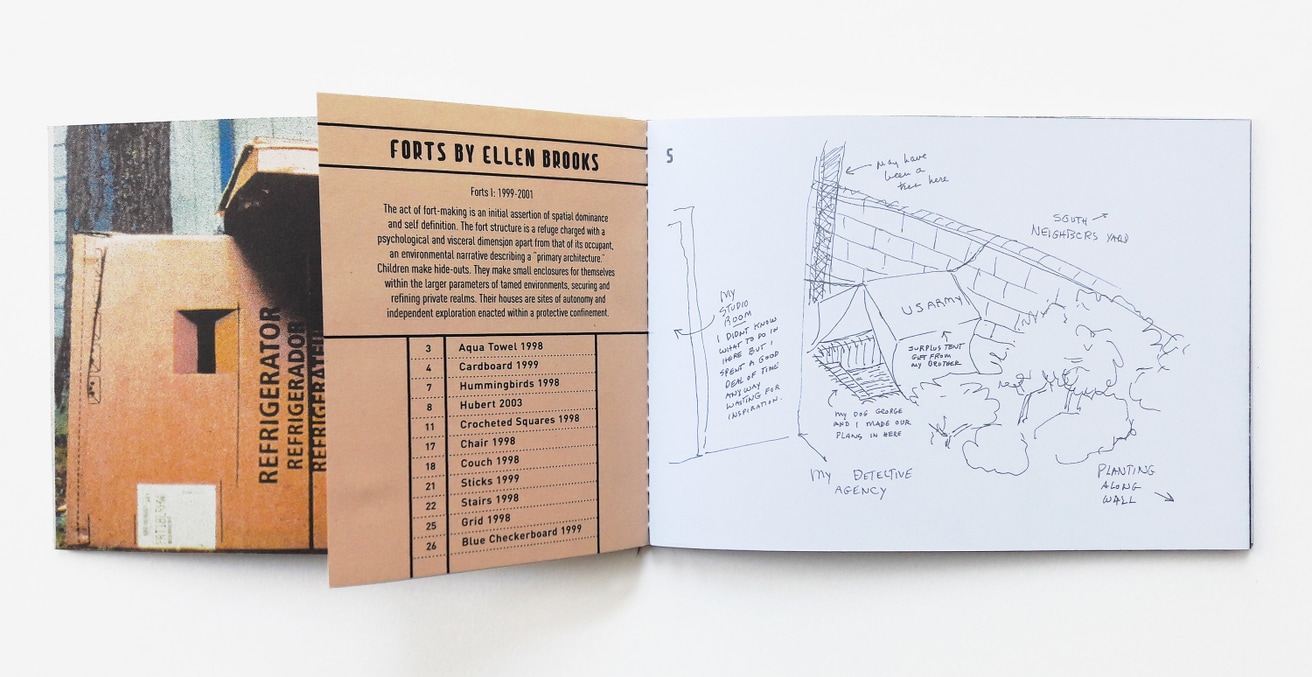 REFRIGERATOR
REFRIGERADOR
FORTS BY ELLEN BROOKS
Forts I: 1999-2001
The act of fort-making is an initial assertion of spatial dominance
and self definition. The fort structure is a refuge charged with a
psychological and visceral dimension apart from that of its occupant,
an environmental narrative describing a "primary architecture."
Children make hide-outs. They make small enclosures for themselves
within the larger parameters of tamed environments, securing and
refining private realms. Their houses are sites of autonomy and
independent exploration enacted within a protective confinement.
3 Aqua Towel 1998
4 Cardboard 1999
7 Hummingbirds 1998
8 Hubert 2003
11 Crocheted Squares 1998
17 Chair 1998
18 Couch 1998
21 Sticks 1999
22 Stairs 1998
25 Grid 1998
26 Blue Checkerboard 1999
5
May have
been a
tree here
SOUTH
NEIGHBORS YARD
MY
STUDIO
ROOM
I DIDNT KNOW
WHAT TO DO IN
HERE BUT I
SPENT A GOOD
DEAL OF TIME
ANYWAY
WAITING FOR
INSPIRATION.
US ARMY
SURPLUS TENT
GOT FROM
MY BROTHER
MY DOG GEORGE
AND I MADE OUR
PLANS IN HERE
MY DETECTIVE
AGENCY
PLANTING
ALONG
WALL